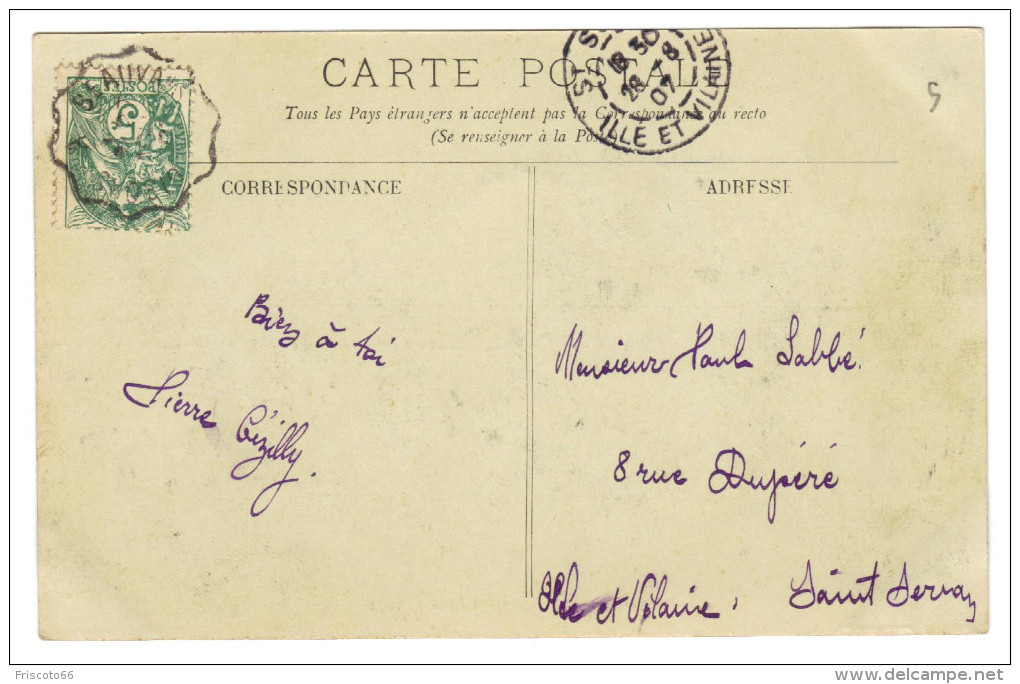 CARTE POSTALE
Tous les Pays étrangers n'acceptent pas la Correspondance au recto
(Se renseigner à la Poste)
CORRESPONDANCE
ADRESSE
BEAUVA
5
ST S
18 30
28 - 8
07
ILLE ET VILAINE
5
Bien à toi
Pierre Cézilly.
Monsieur Paul Labbé.
8 rue Dupéré
Saint Servan
Ille et Vilaine.
Friscoto66
delcampe.net